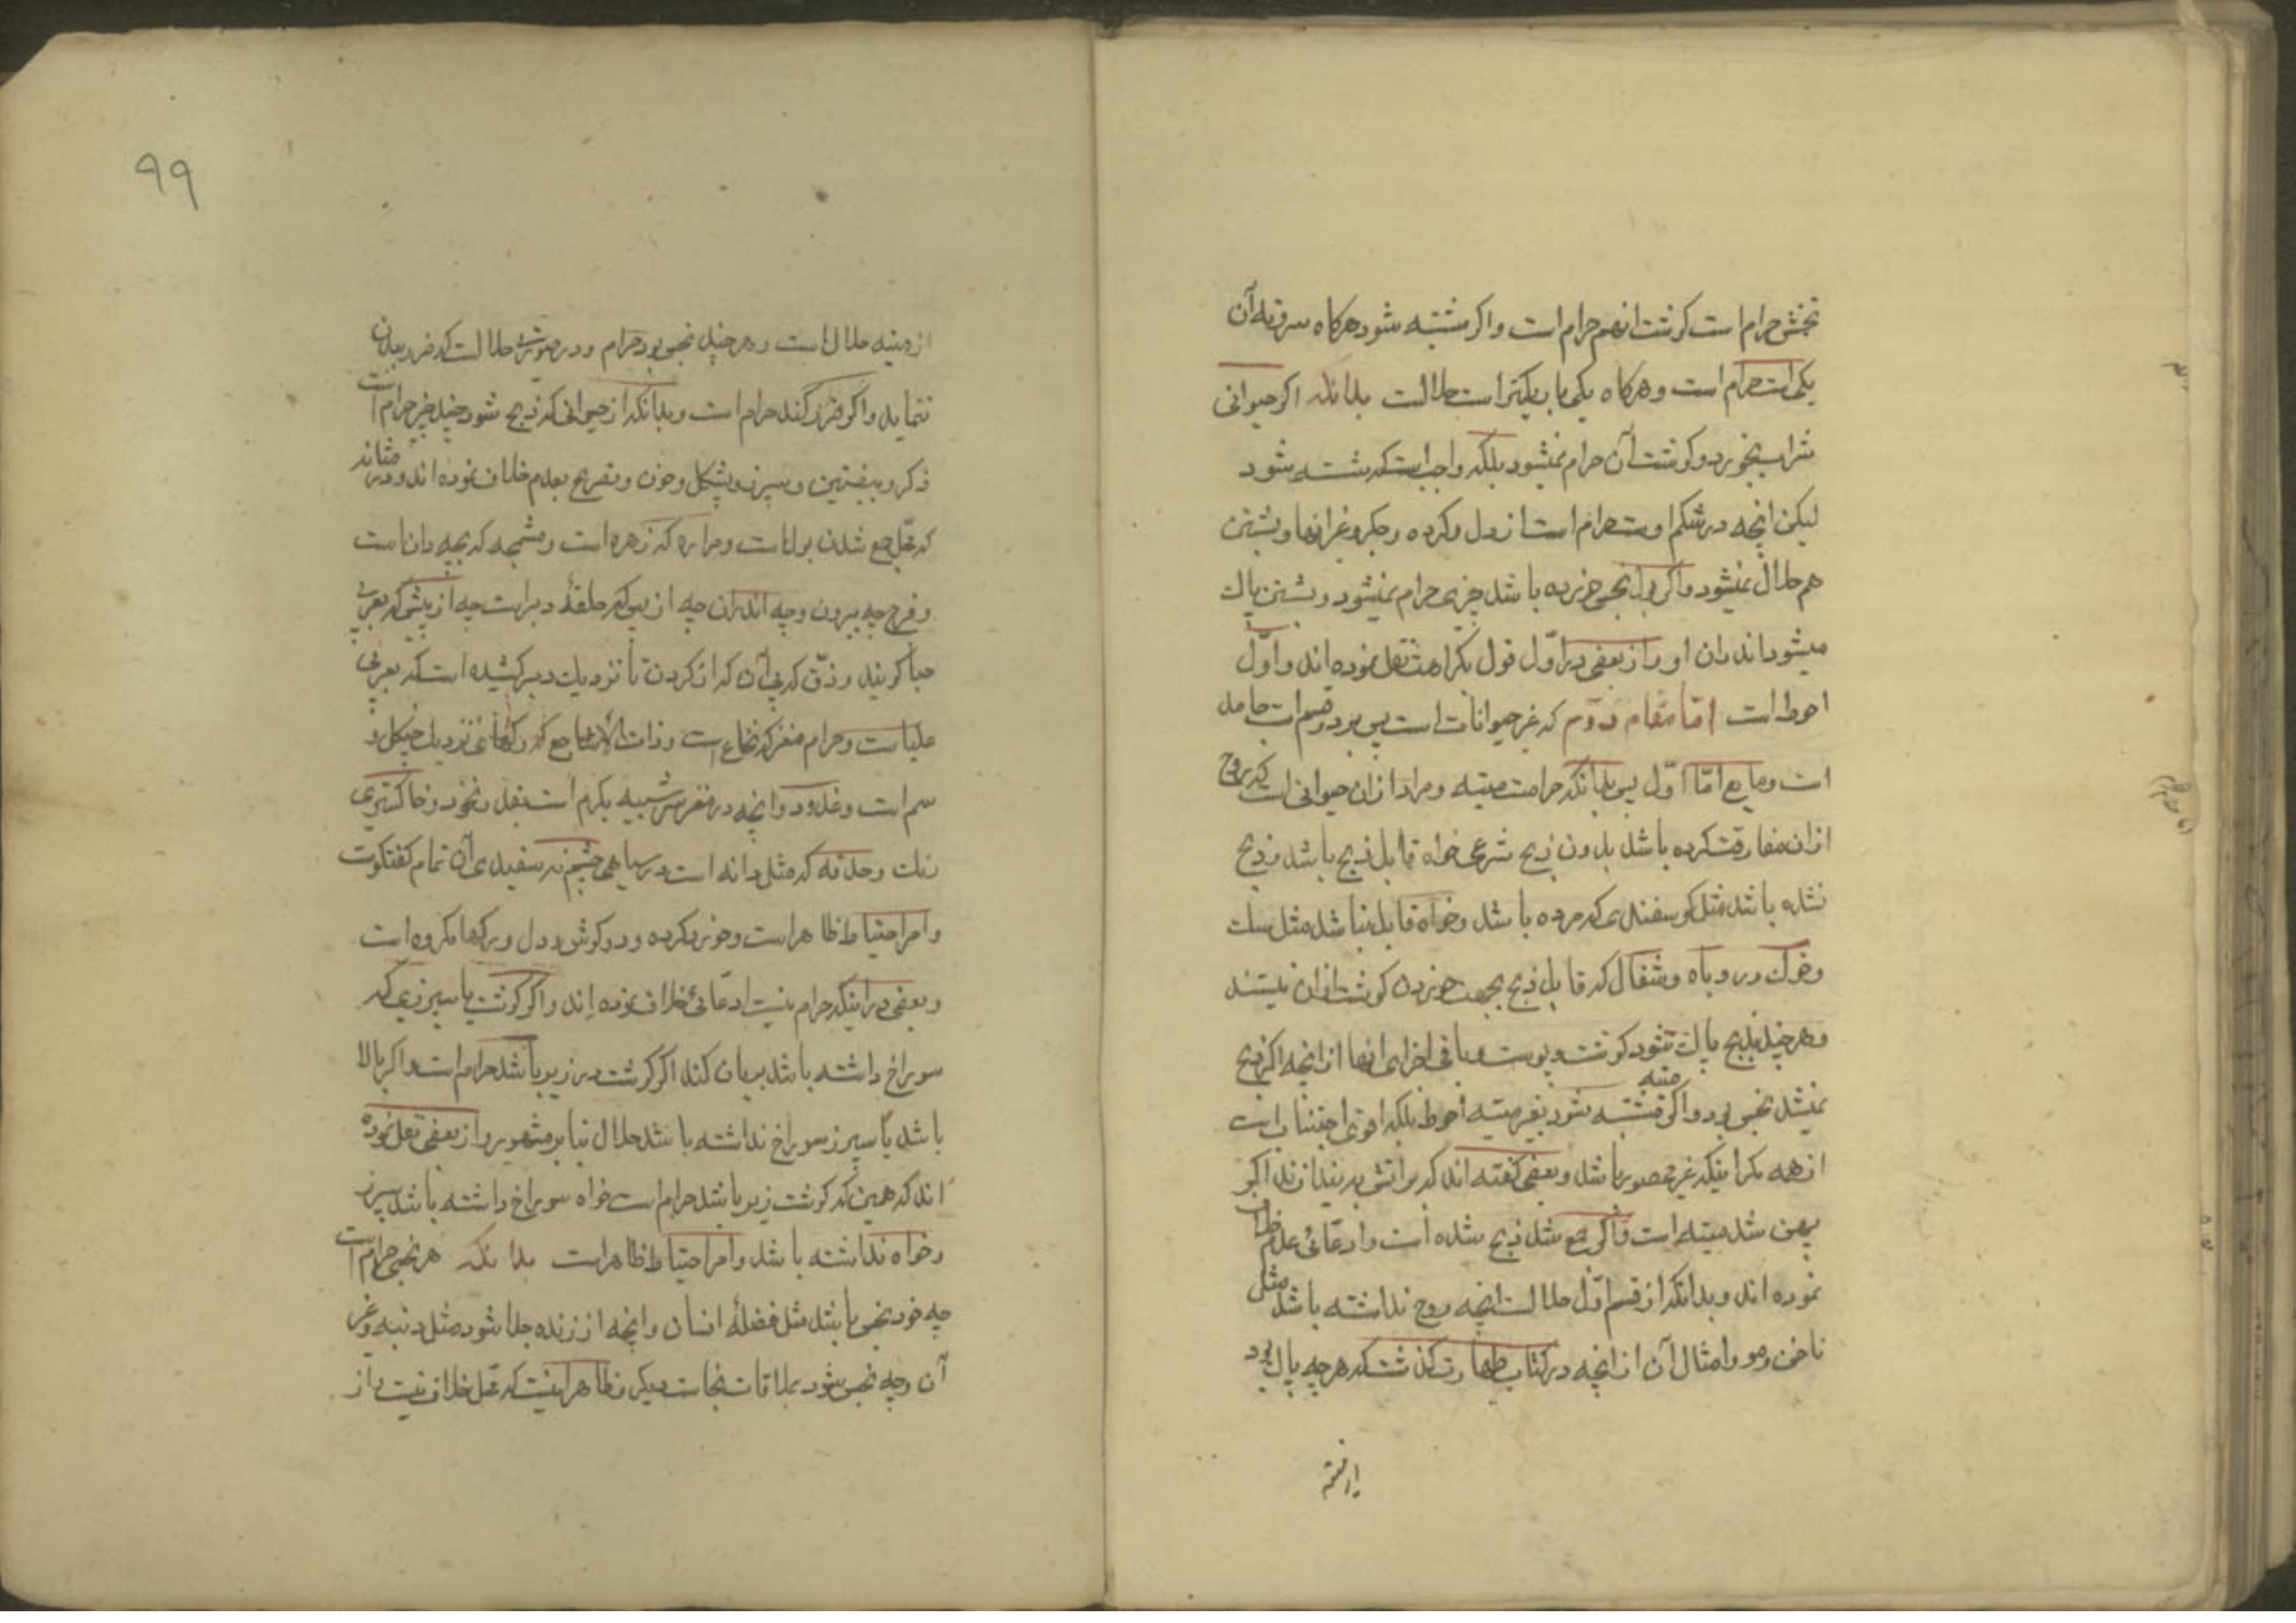 تخمش حرام است کوشت انهم حرام است واکر مشتبه شود هرکاه سر و ته آن
یکی است حرام است و هرکاه یکی باریکتر است حلالست بدانکه اکر حیوانی
شراب بخورد و کوشت آن حرام نمیشود بلکه واجب است که شسته شود
لیکن انچه در شکم اوست حرام است از دل وکرده و جکر و غیر انها و بشستن
هم حلال نمیشود واکر بول نجس خورده باشد چیزی حرام نمیشود و بشستن پاك
میشود اندران او و از بعضی در اوّل قول بکراهت نقل نموده اند و اوّل
احوط است امّا مقام دوّم که غیر حیوانات است پس بر دو قسم است جامد
است و مایع امّا اوّل پس بدانکه حرامست میته و مراد ازان حیوانی است که روح
ازان مفارقت کرده باشد بدون ذبح شرعی خواه قابل ذبح باشد و ذبح
نشده باشد مثل کوسفندی که مرده باشد و خواه قابل نباشد مثل سك
و خوك و روباه و شغال که قابل ذبح بجهت خوردن کوشت ازان نیستند
و هرچند بذبح پاك شود کوشت و پوست و باقی اجزای انها از انچه اکر ذبح
نمیشد نجس بود واکر مشتبه شود میته بغیر میته احوط بلکه اقوی اجتناب است
از همه مکر اینکه غیر محصور باشد و بعضی کفته اند که بر اتش بیندازند اکر
پهن شد میته است واکر جمع شد ذبح شده است و ادّعائی عدم خلاف
نموده اند و بدانکه از قسم اوّل حلالست انچه روح نداشته باشد مثل
ناخن و مو و امثال آن از انچه در کتاب طهارت کذشت که هرچه پاك بود
از میته
۹۹
از میته حلال است و هرچند نجس بود حرام و در صورتی حلالست که ضرر ببدن
ننماید واکر ضرر کند حرام است و بدانکه از حیوانی که ذبح شود چند چیز حرام است
ذکر و بیضتین و سپرز و پشکل و خون و تصریح بعدم خلاف نموده اند و در مثانه
که محل جمع شدن بول است و مراره که زهره است و مشیمه که بچه دان است
و فرج چه بیرون و چه اندران چه از پس که حلقهٔ دبر است چه از پیش که بعربی
حیا کویند و دو پی آن که از کردن تا نزدیك دبر کشیده است که بعربی
علباست و حرام مغز که نخاع است و ذات الاشاجع که نزدیك چنکل و
سم است و غدود و انچه در مغز سر شبیه بکرم است بقدر نخود و خاکستری
رنك و حدقه که مثل دانه است در سیاهی چشم نه سفیدی آن تمام کفتکوست
و امر احتیاط ظاهر است و خوردن کرده و دو کوش و دل و رکها مکروه است
و بعضی در اینکه حرام نیست ادعائی خلاف نموده اند واکر کوشت با سپرزی که
سوراخ داشته باشد بریان کند اکر کوشت در زیر باشد حرام است واکر بالا
باشد یا سپرز سوراخ نداشته باشد حلال بنا بر مشهور و از بعضی نقل نموده
اند که همین که کوشت زیر باشد حرام است خواه سوراخ داشته باشد سپرز
و خواه نداشته باشد و امر احتیاط ظاهر است بدانکه هر نجسی حرام است
چه خود نجس باشد مثل فضلهٔ انسان و انچه از زنده جدا شود مثل دنبه و غیر
آن و چه نجس شود بملاقات نجاست دیکر و ظاهر اینست که محل خلاف نیست و از